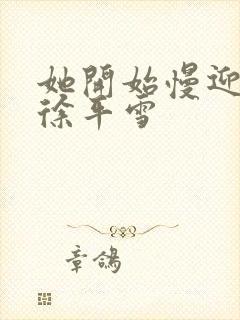 她開始慢迎
徐平雪
章鴿